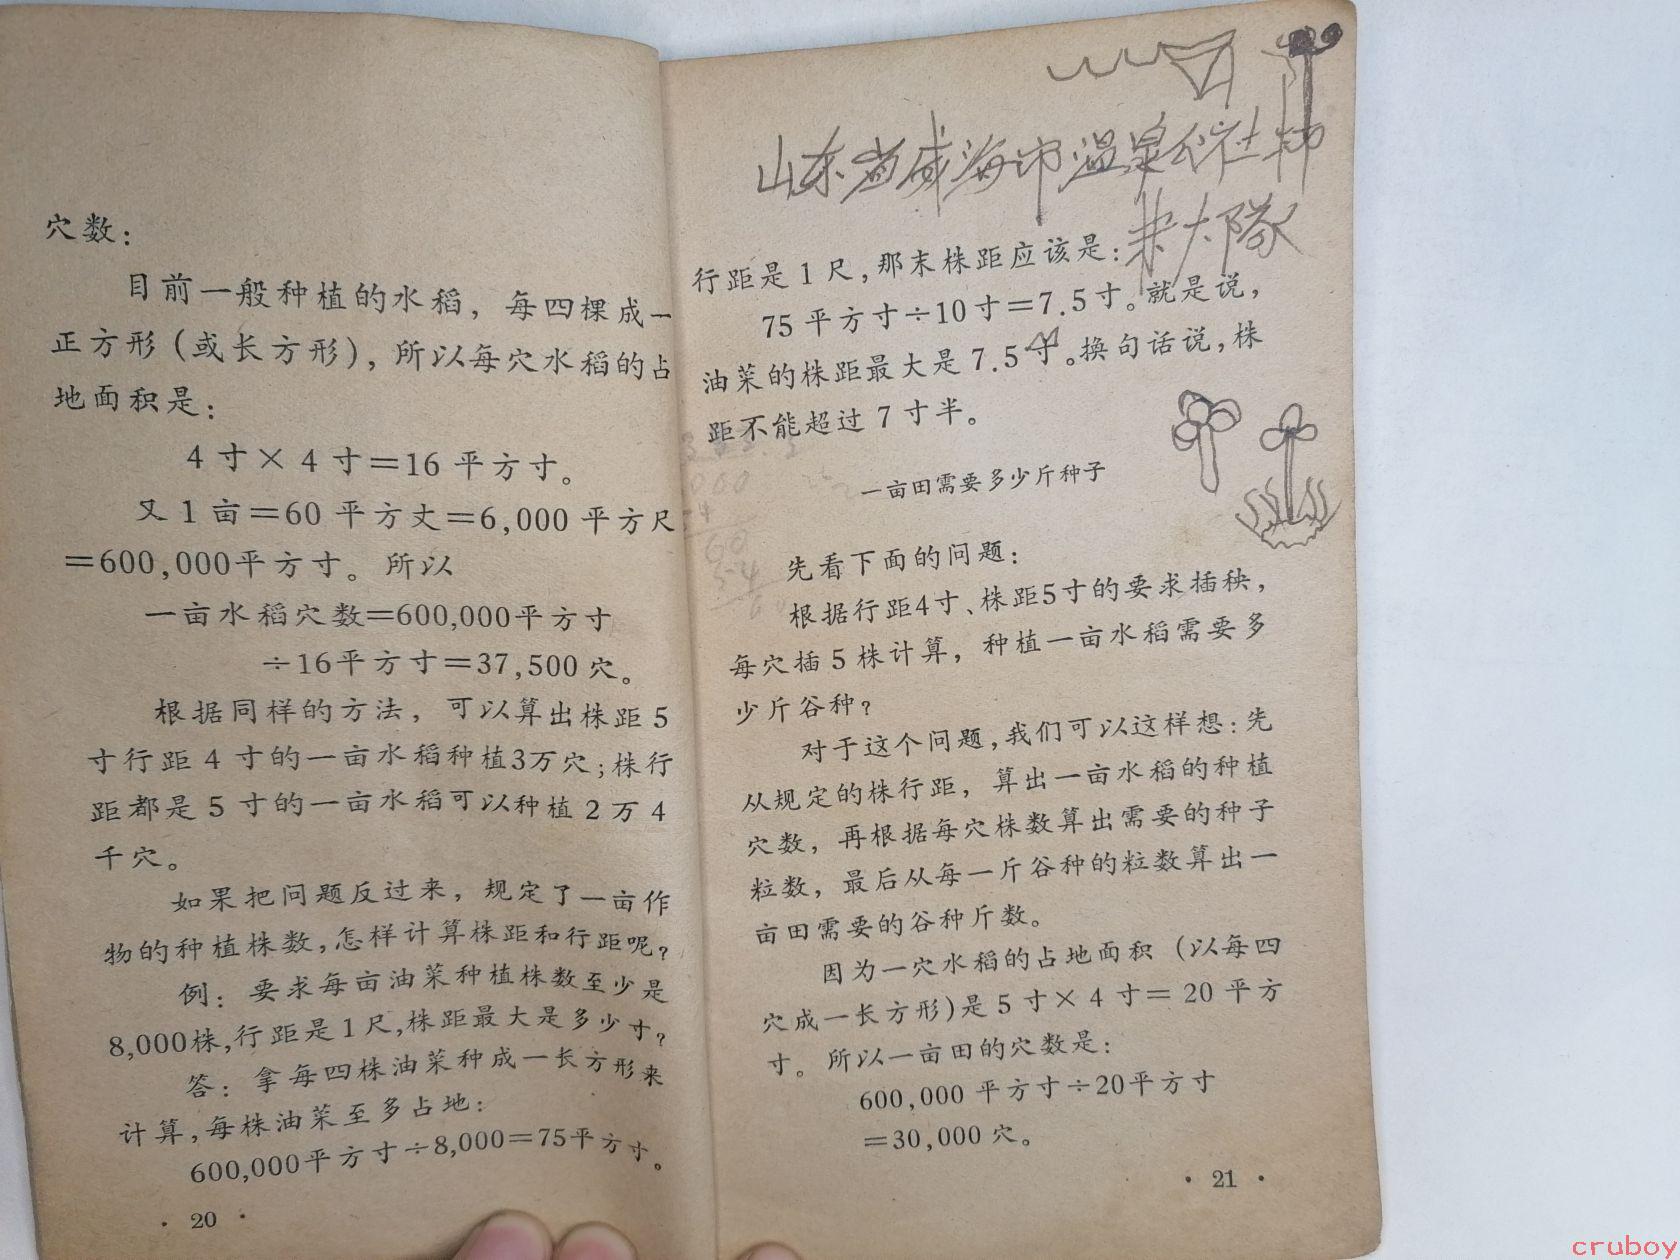 穴数：
目前一般种植的水稻，每四棵成一
正方形（或长方形），所以每穴水稻的占
地面积是：
4寸×4寸＝16平方寸。
又1亩＝60平方丈＝6,000平方尺
＝600,000平方寸。所以
一亩水稻穴数＝600,000平方寸
÷16平方寸＝37,500穴。
根据同样的方法，可以算出株距5
寸行距4寸的一亩水稻种植3万穴；株行
距都是5寸的一亩水稻可以种植2万4
千穴。
如果把问题反过来，规定了一亩作
物的种植株数，怎样计算株距和行距呢？
例：要求每亩油菜种植株数至少是
8,000株，行距是1尺，株距最大是多少寸？
答：拿每四株油菜种成一长方形来
计算，每株油菜至多占地：
600,000平方寸÷8,000＝75平方寸。
·20·
山东省威海市温泉公社
大隊
行距是1尺，那末株距应该是：
75平方寸÷10寸＝7.5寸。就是说，
油菜的株距最大是7.5寸。换句话说，株
距不能超过7寸半。
一亩田需要多少斤种子
先看下面的问题：
根据行距4寸、株距5寸的要求插秧，
每穴插5株计算，种植一亩水稻需要多
少斤谷种？
对于这个问题，我们可以这样想：先
从规定的株行距，算出一亩水稻的种植
穴数，再根据每穴株数算出需要的种子
粒数，最后从每一斤谷种的粒数算出一
亩田需要的谷种斤数。
因为一穴水稻的占地面积（以每四
穴成一长方形）是5寸×4寸＝20平方
寸。所以一亩田的穴数是：
600,000平方寸÷20平方寸
＝30,000穴。
·21·
cruboy